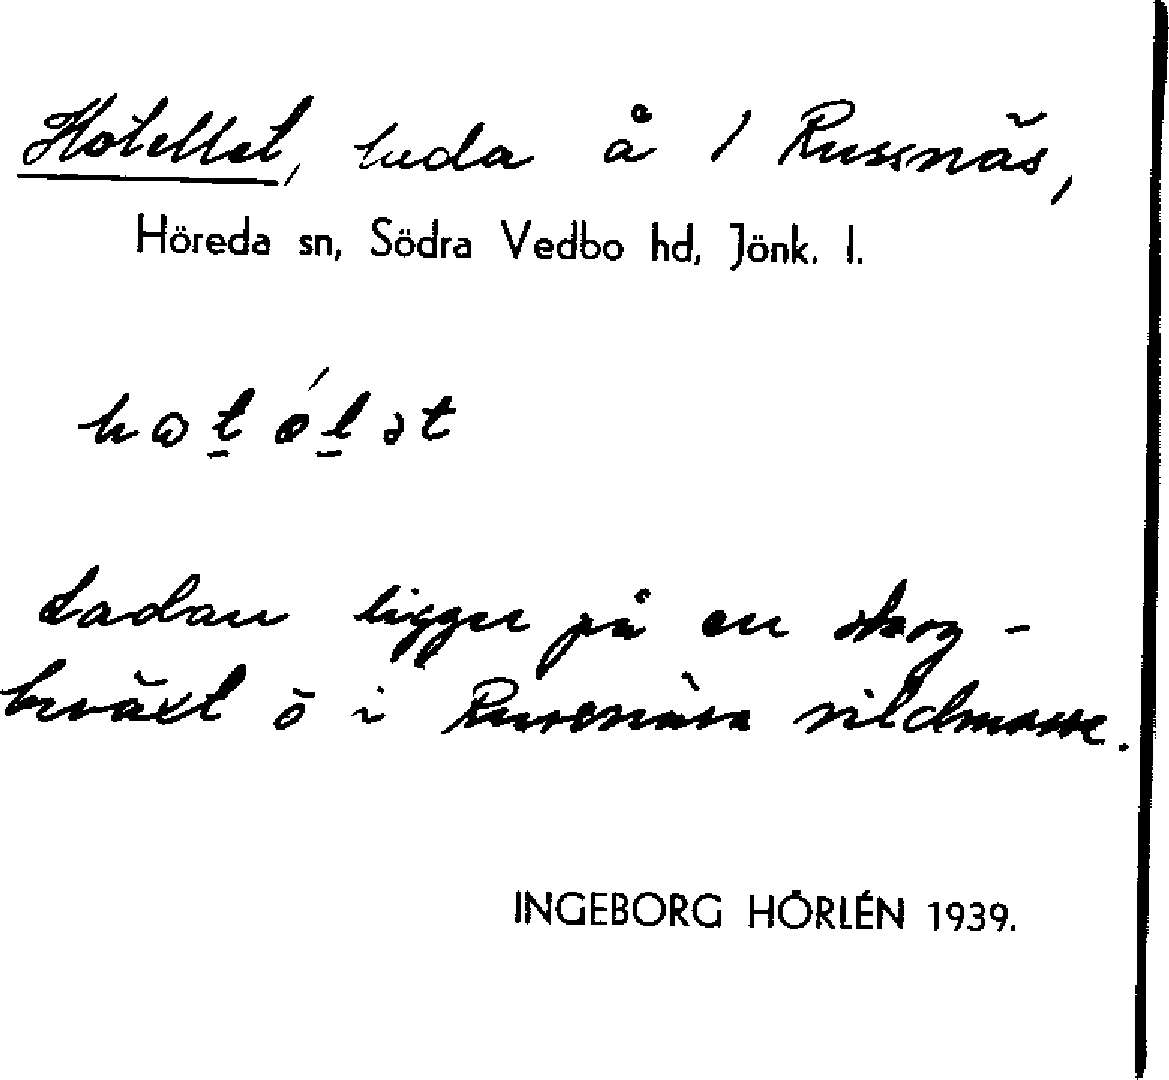 Hotellet, lada å 1 Russnäs,
Höreda sn, Södra Vedbo hd, Jönk. l.
Ladan ligger på en skog-
beväxt ö i Russnäsa vildmosse.
INGEBORG HÖRLÉN 1939.